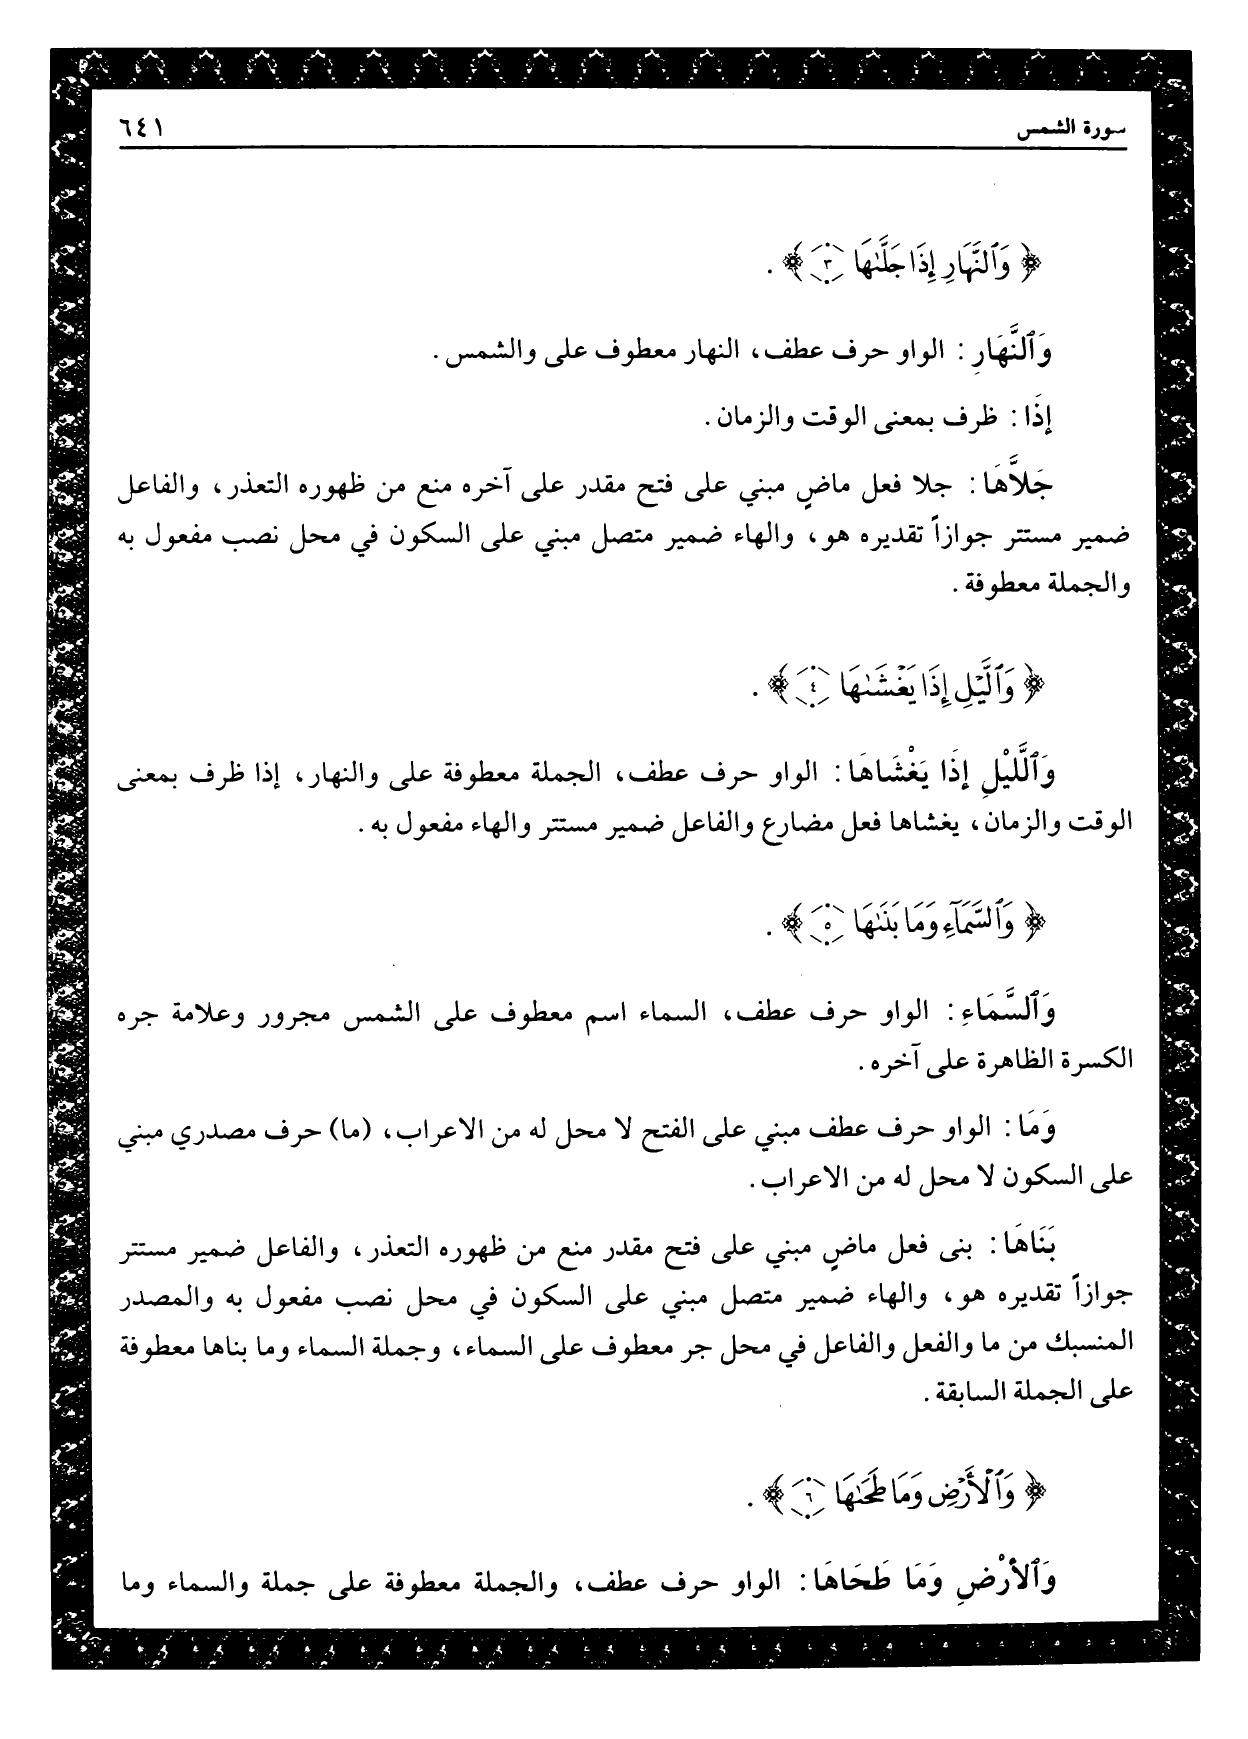 سورة الشمس ٦٤١
﴿ وَٱلنَّهَارِ إِذَا جَلَّىٰهَا ٣ ﴾ .
وَٱلنَّهَارِ : الواو حرف عطف، النهار معطوف على والشمس .
إِذَا : ظرف بمعنى الوقت والزمان .
جَلاَّهَا : جلا فعل ماضٍ مبني على فتح مقدر على آخره منع من ظهوره التعذر، والفاعل
ضمير مستتر جوازاً تقديره هو، والهاء ضمير متصل مبني على السكون في محل نصب مفعول به
والجملة معطوفة .
﴿ وَٱلَّيْلِ إِذَا يَغْشَىٰهَا ٤ ﴾ .
وَٱللَّيْلِ إِذَا يَغْشَاهَا : الواو حرف عطف، الجملة معطوفة على والنهار، إذا ظرف بمعنى
الوقت والزمان، يغشاها فعل مضارع والفاعل ضمير مستتر والهاء مفعول به .
﴿ وَٱلسَّمَآءِ وَمَا بَنَىٰهَا ٥ ﴾ .
وَٱلسَّمَاءِ : الواو حرف عطف، السماء اسم معطوف على الشمس مجرور وعلامة جره
الكسرة الظاهرة على آخره .
وَمَا : الواو حرف عطف مبني على الفتح لا محل له من الاعراب، (ما) حرف مصدري مبني
على السكون لا محل له من الاعراب .
بَنَاهَا : بنى فعل ماضٍ مبني على فتح مقدر منع من ظهوره التعذر، والفاعل ضمير مستتر
جوازاً تقديره هو، والهاء ضمير متصل مبني على السكون في محل نصب مفعول به والمصدر
المنسبك من ما والفعل والفاعل في محل جر معطوف على السماء، وجملة السماء وما بناها معطوفة
على الجملة السابقة .
﴿ وَٱلْأَرْضِ وَمَا طَحَىٰهَا ٦ ﴾ .
وَٱلأَرْضِ وَمَا طَحَاهَا : الواو حرف عطف، والجملة معطوفة على جملة والسماء وما